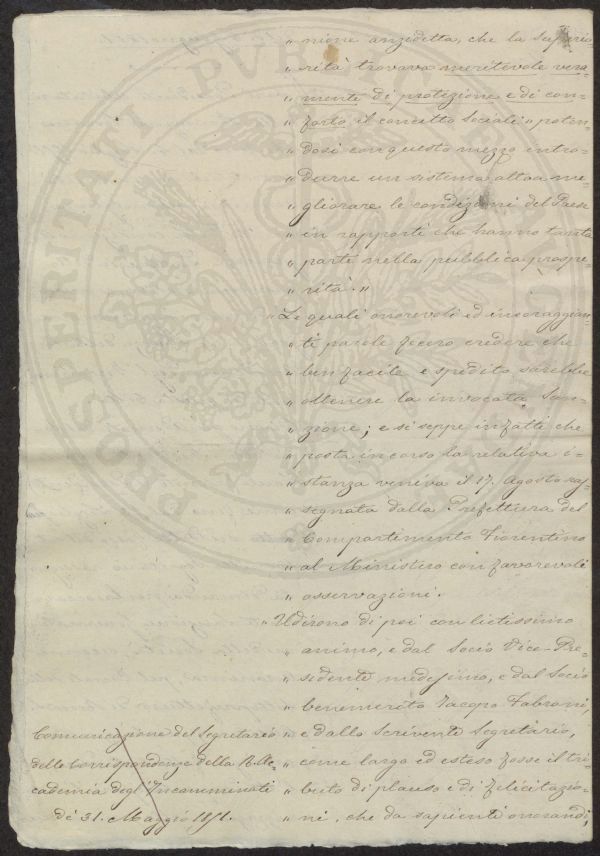 " nione anzidetta, che la Superio=
" rità trovava meritevole vera=
" mente di protezione e di con=
" forto il concetto sociali " poten=
" dosi con questo mezzo intro=
" durre un sistema atto a me=
" gliorare le condizioni del Paese
" in rapporti che hanno tanta
" parte nella pubblica prospe=
" rità. "
" Le quali onorevoli ed incoraggian=
" ti parole fecero credere che
" ben facile e spedito sarebbe
" ottenere la invocata San=
" zione; e si seppe infatti che
" posta in corso la relativa i=
" stanza veniva il 17. Agosto ras=
" segnata dalla Prefettura del
" Compartimento Fiorentino
" al Ministero con favorevoli
" osservazioni.
" Udirono di poi con lietissimo
" animo, e dal Socio Vice-Pre=
" sidente medesimo, e dal Socio
" benemerito Jacopo Fabroni,
" e dallo Scrivente Segretario,
" come largo ed esteso fosse il tri=
" buto di plauso e di felicitazio=
" ni, che da sapienti onorandi,
Comunicazione del Segretario
delle Corrispondenze della R. Ac=
cademia degl'Incamminati
de' 31. Maggio 1851.
PROSPERITATI PUBLICAE